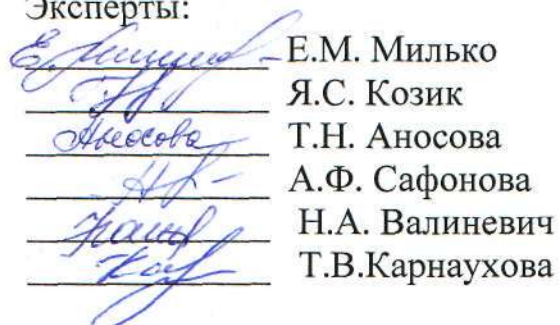 Эксперты:
Е.М. Милько
Я.С. Козик
Аносова Т.Н. Аносова
А.Ф. Сафонова
Н.А. Валиневич
Т.В.Карнаухова